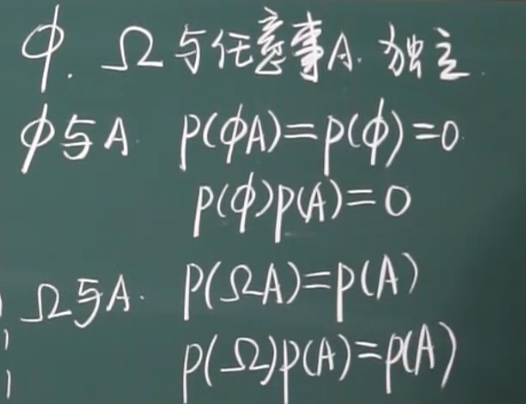 φ. Ω与任意事A.独立.
φ与A. P(φA)=P(φ)=0.
P(φ)P(A)=0
Ω与A. P(ΩA)=P(A)
P(Ω)P(A)=P(A)